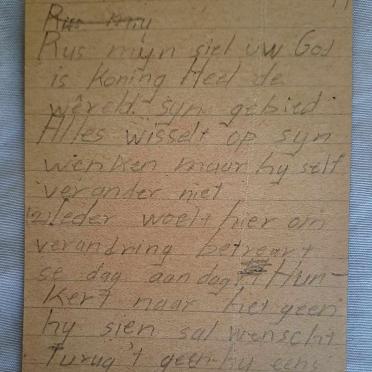 Rus myn siel uw God
is Koning Heel de
wêreld syn gebied
Alles wisselt op syn
wenken maar hy self
verander niet
(2) Ieder woelt hier om
verandring betreart
se dag aan dag Hun-
kert naar het geen
hy sien sal wenscht
Turug 't geen hy eens